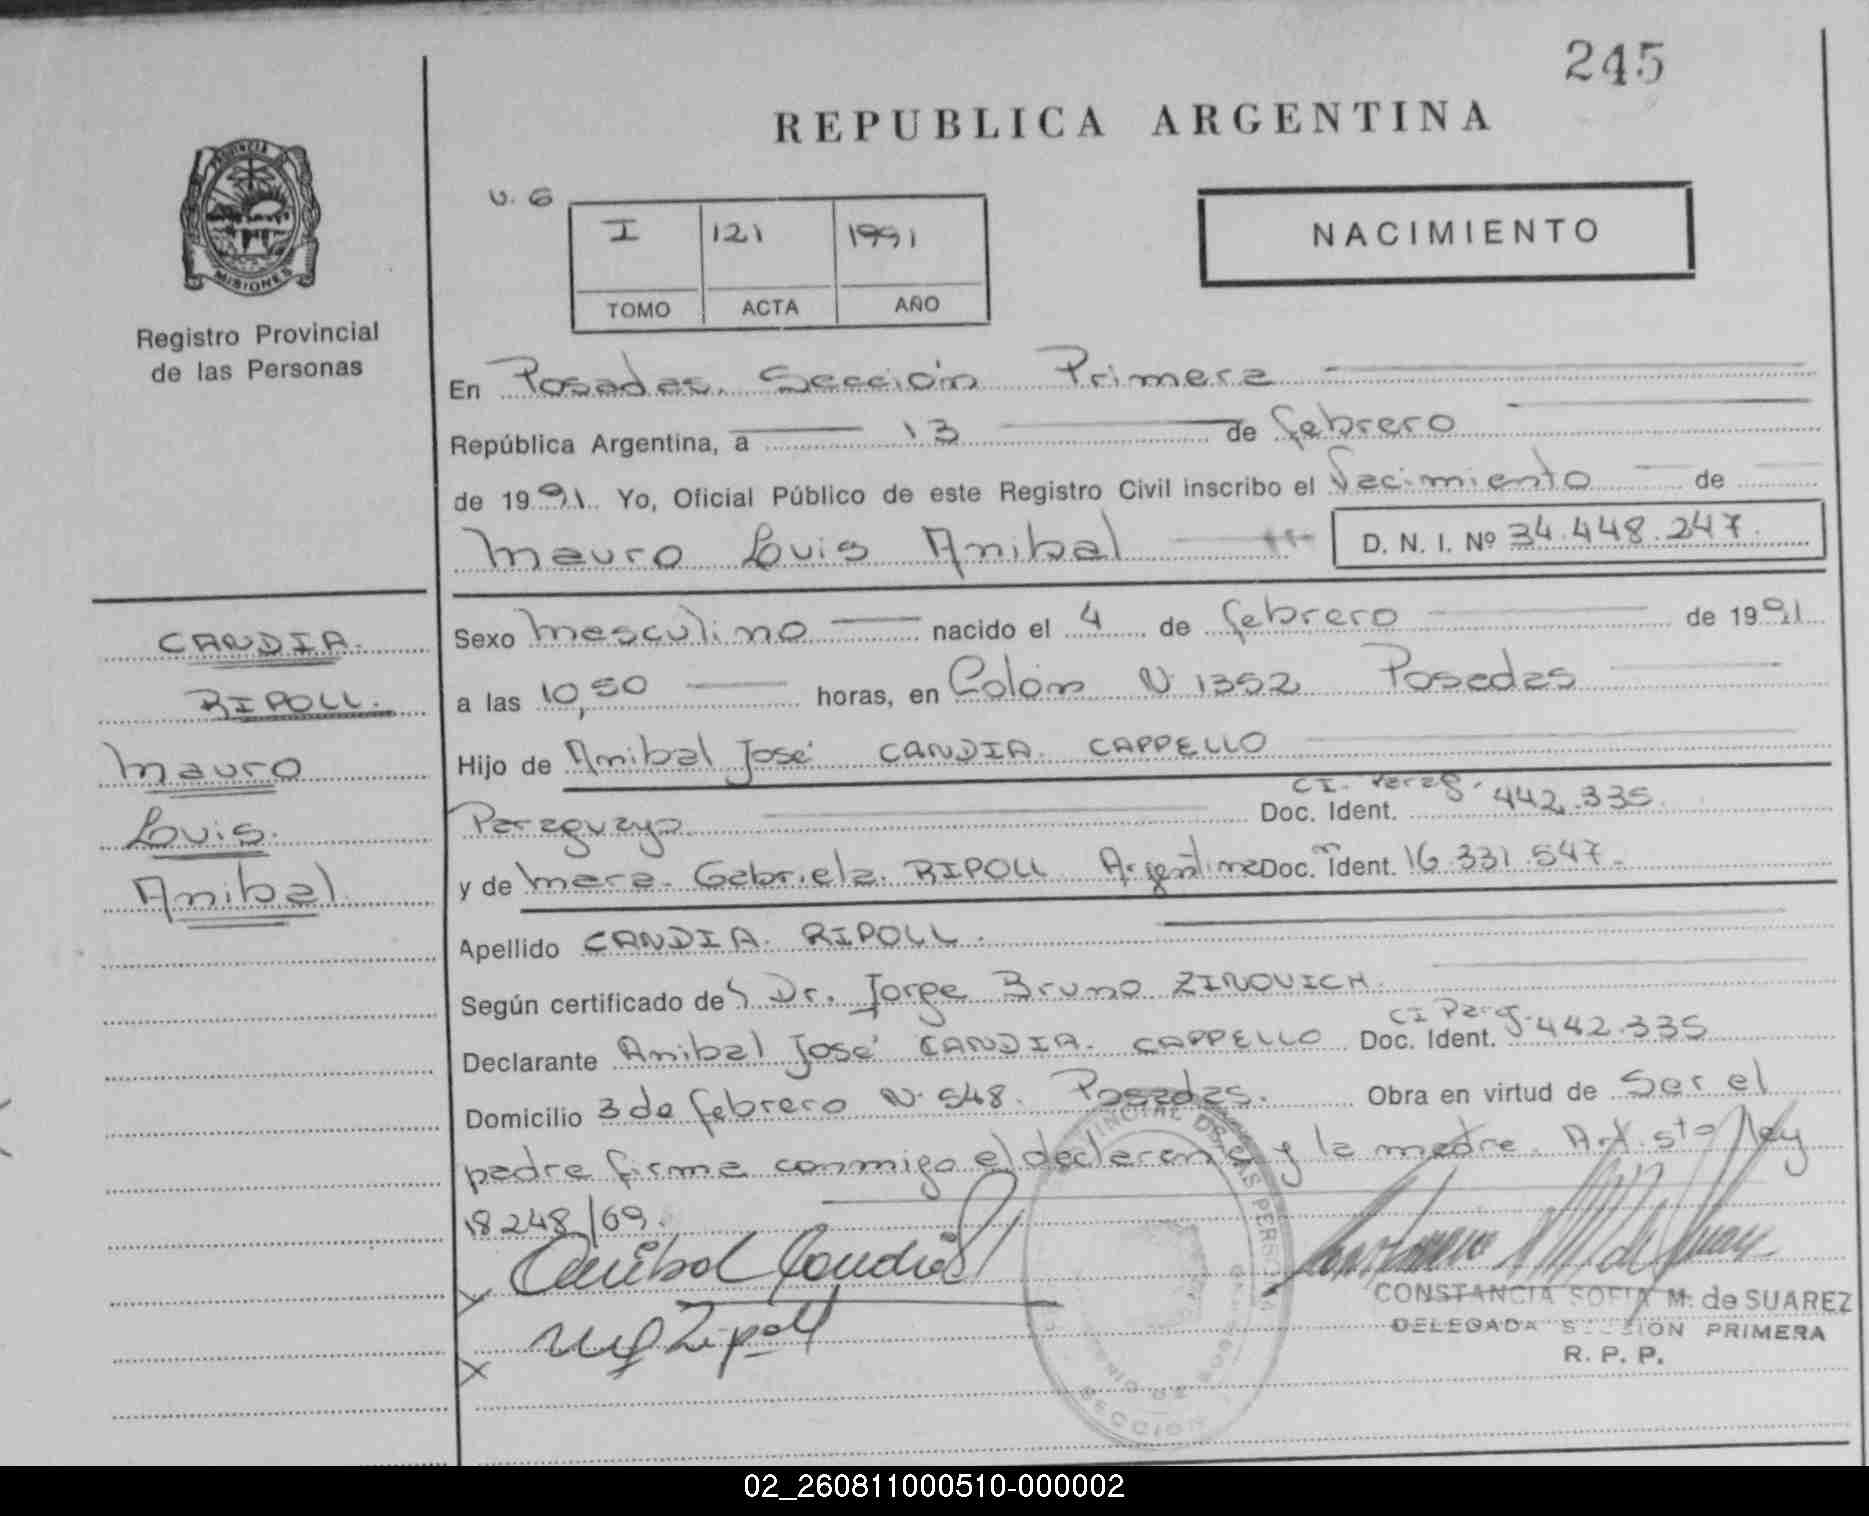 245
REPUBLICA ARGENTINA
PROVINCIA DE
MISIONES
Registro Provincial
de las Personas
U. G
I 121 1991
TOMO ACTA AÑO
NACIMIENTO
En Posadas. Sección Primera
República Argentina, a 13 de febrero
de 1991. Yo, Oficial Público de este Registro Civil inscribo el Nacimiento de
Mauro Luis Anibal D. N. I. Nº 34.448.247.
CANDIA.
RIPOLL.
Mauro
Luis.
Anibal.
Sexo Masculino nacido el 4 de febrero de 1991
a las 10,50 horas, en Colón N 1352 Posadas
Hijo de Anibal José CANDIA. CAPPELLO
Paraguayo Doc. Ident. CI. Parag. 442.335.
y de Mara. Gabriela. RIPOLL Argentina Doc. Ident. 16.331.547.
Apellido CANDIA. RIPOLL.
Según certificado del Dr. Jorge Bruno ZINOVICH.
Declarante Anibal José CANDIA. CAPPELLO Doc. Ident. CI Parag. 442.335
Domicilio 3 de febrero N. 548. Posadas. Obra en virtud de Ser el
padre firma conmigo el declarante y la madre. Art. 5to ley
18248/69.
Anibal Candia
Ripoll
CONSTANCIA SOFIA M. de SUAREZ
DELEGADA SECCION PRIMERA
R. P. P.
02_260811000510-000002